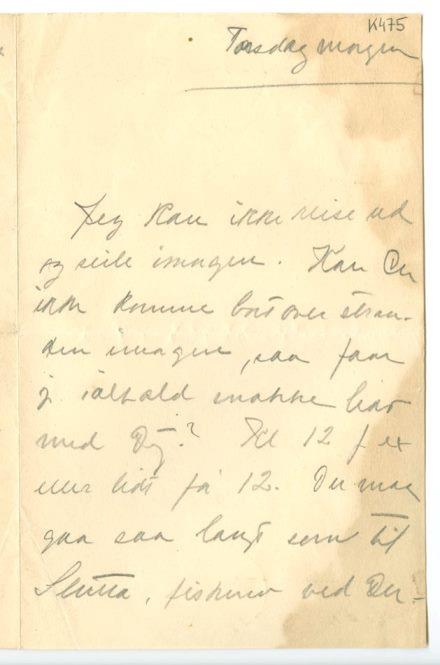 K475
Torsdag morgen
Jeg kan ikke reise ud
og seile imorgen. Kan Du
ikke komme bort over stran-
den imorgen, saa faar
j ialtfald snakke lidt
med Dig? Kl 12 f ex
eller lidt før 12. Du maa
gaa saa langt som til
fiskeren ved